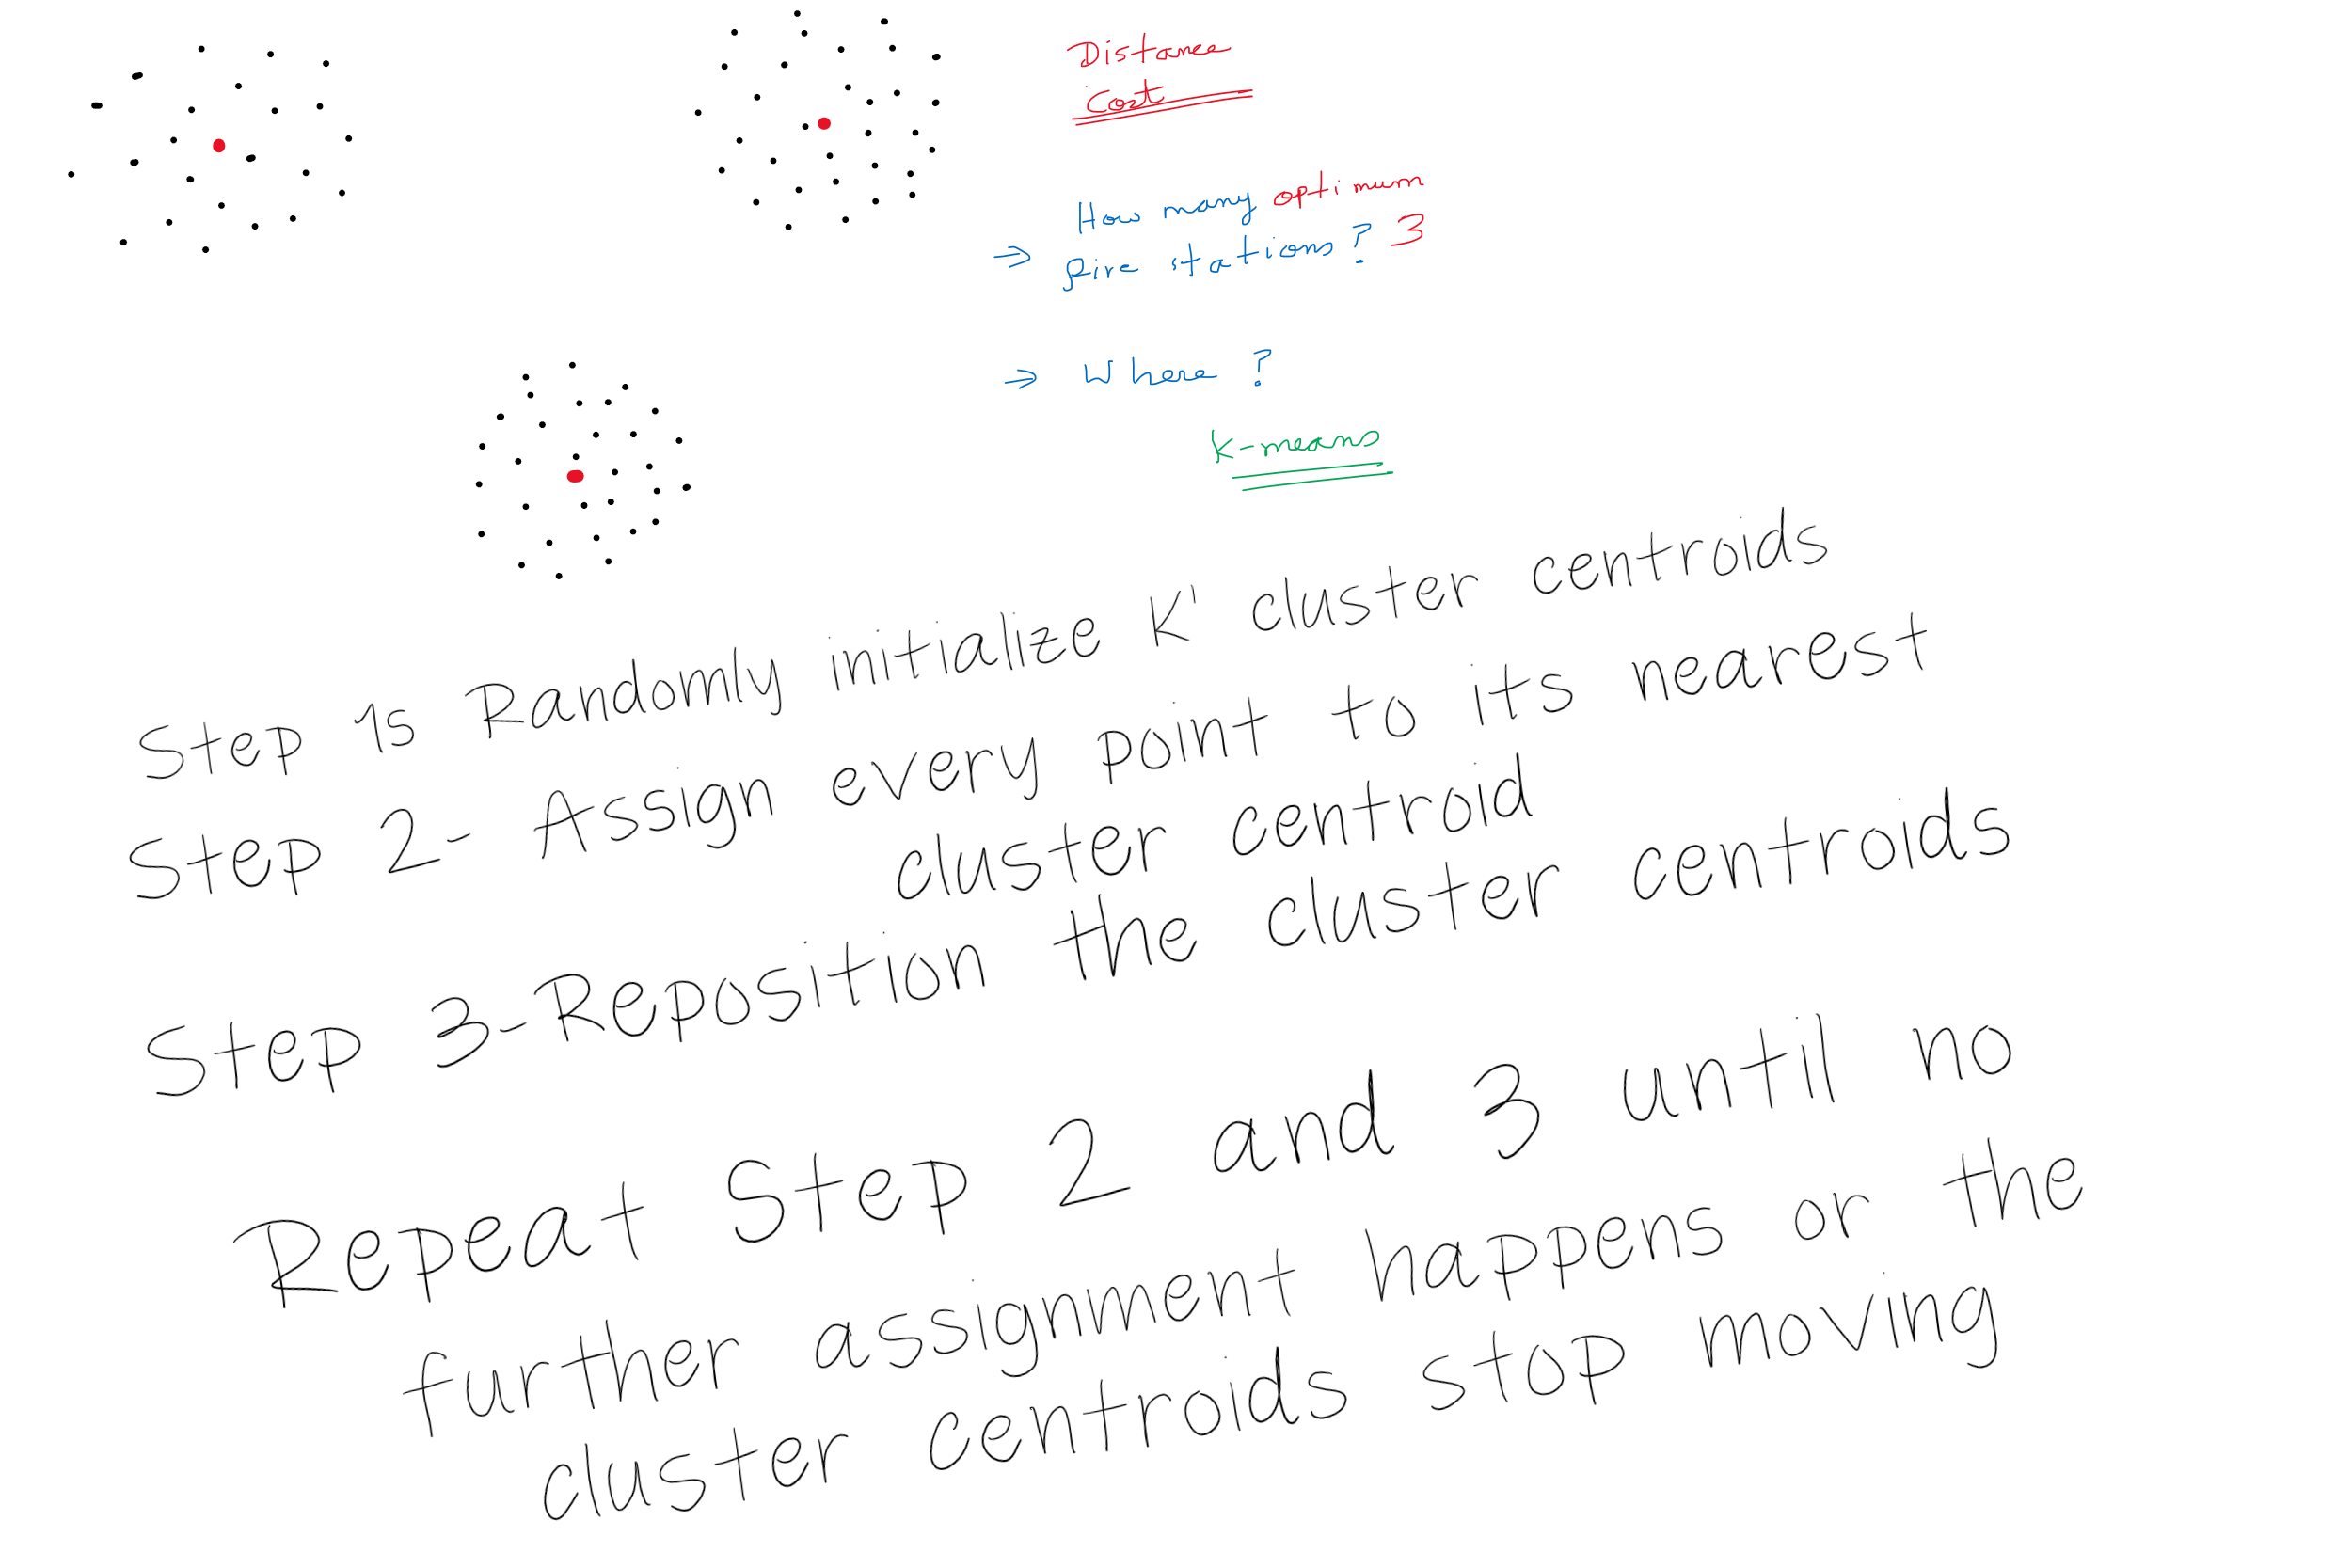 Distance
Cost
How many optimum
⇒ fire stations? 3
⇒ Where ?
K-means
Step 1s Randomly initialize K' cluster centroids
Step 2- Assign every point to its nearest
cluster centroid
Step 3-Reposition the cluster centroids
Repeat Step 2 and 3 until no
further assignment happens or the
cluster centroids stop moving